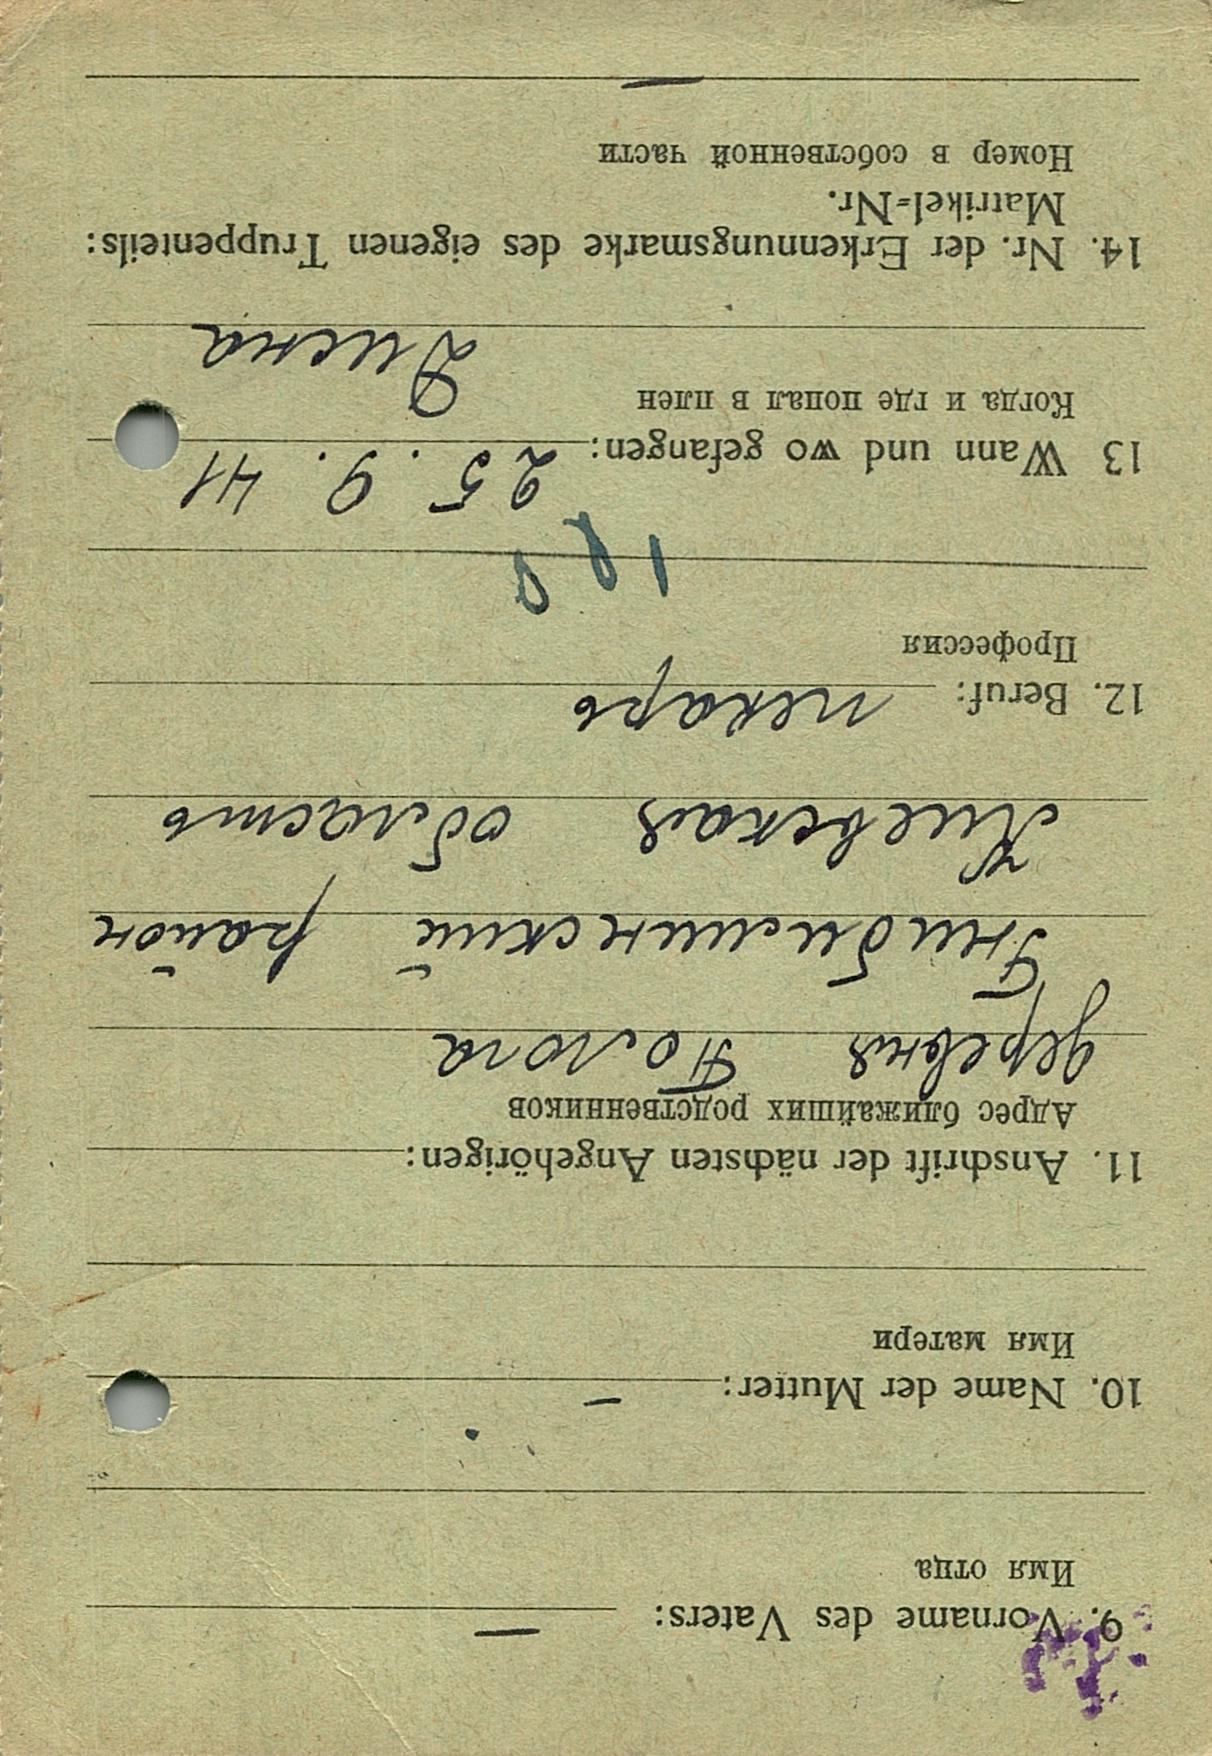 9. Vorname des Vaters: —
Имя отца
10. Name der Mutter: —
Имя матери
11. Anschrift der nächsten Angehörigen:
Адрес ближайших родственников
деревня
район
Киевская область
12. Beruf: пекарь
Профессия
13 Wann und wo gefangen: 25. 9. 41
Когда и где попал в плен
14. Nr. der Erkennungsmarke des eigenen Truppenteils:
Matrikel-Nr.
Номер в собственной части
—